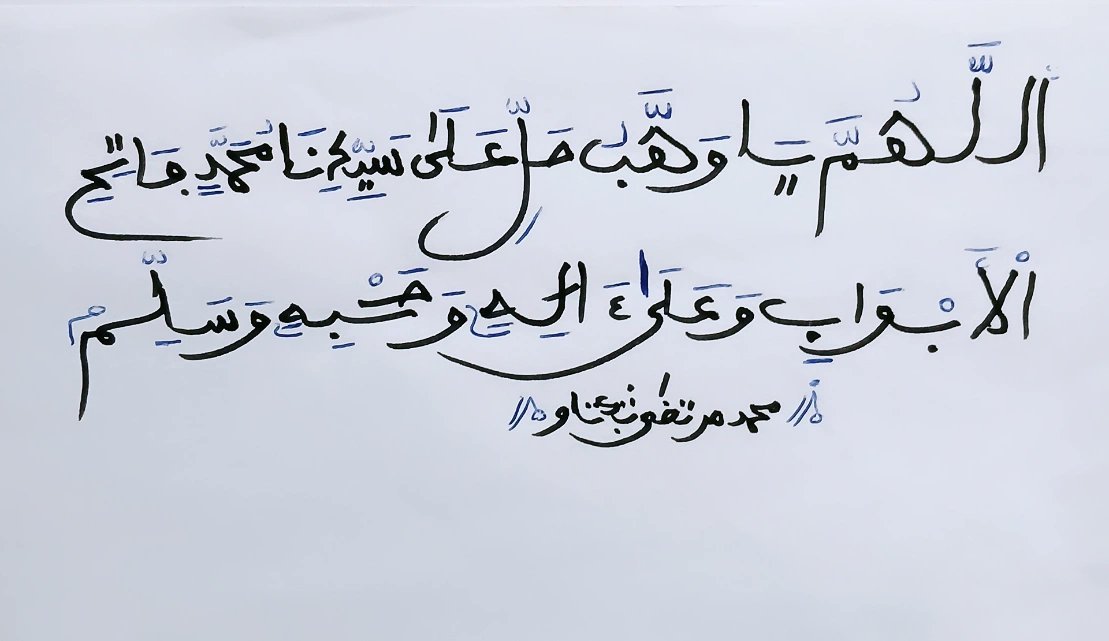 اَللَّهُمَّ يَا وَهَّابُ صَلِّ عَلَىٰ سَيِّدِنَا مُحَمَّدٍ ڢَاتِحِ
اْلَأبْوَابِ وَعَلَىٰ ءَالِهِ وَصَحْبِهِ وَسَلِّمْ
محمد مرتضى